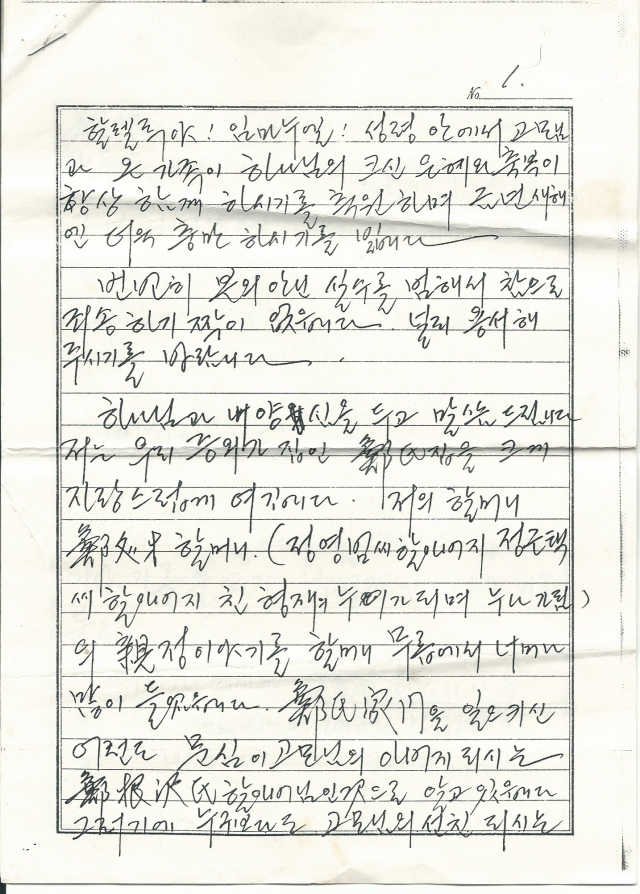 No. 1.
할렐루야! 임마누엘! 성령 안에서 고모님
과 온 가족이 하나님의 크신 은혜와 축복이
항상 함께 하시기를 축원하며 금년 새해
엔 더욱 충만 하시기를 빕니다
번번히 본의 아닌 실수를 범해서 참으로
죄송하기 짝이 없읍니다. 널리 용서해
주시기를 바랍니다.
하나님과 내 양심을 두고 말씀드립니다
저는 우리 증외가 집인 鄭氏집을 크게
자랑스럽게 여깁니다. 저의 할머니
鄭 할머니. (정영범씨 할아버지 정근택
씨 할아버지 친 형재의 누이가 되며 누나 )
의 親정이야기를 할머니 무릎에서 너머나
많이 들었읍니다. 鄭氏家門을 일으키신
어런도 고모님의 아버지 되시는
鄭根沢氏 할아버님인것으로 알고 있읍니다
그러기에 누구보다도 고모님의 선친 되시는